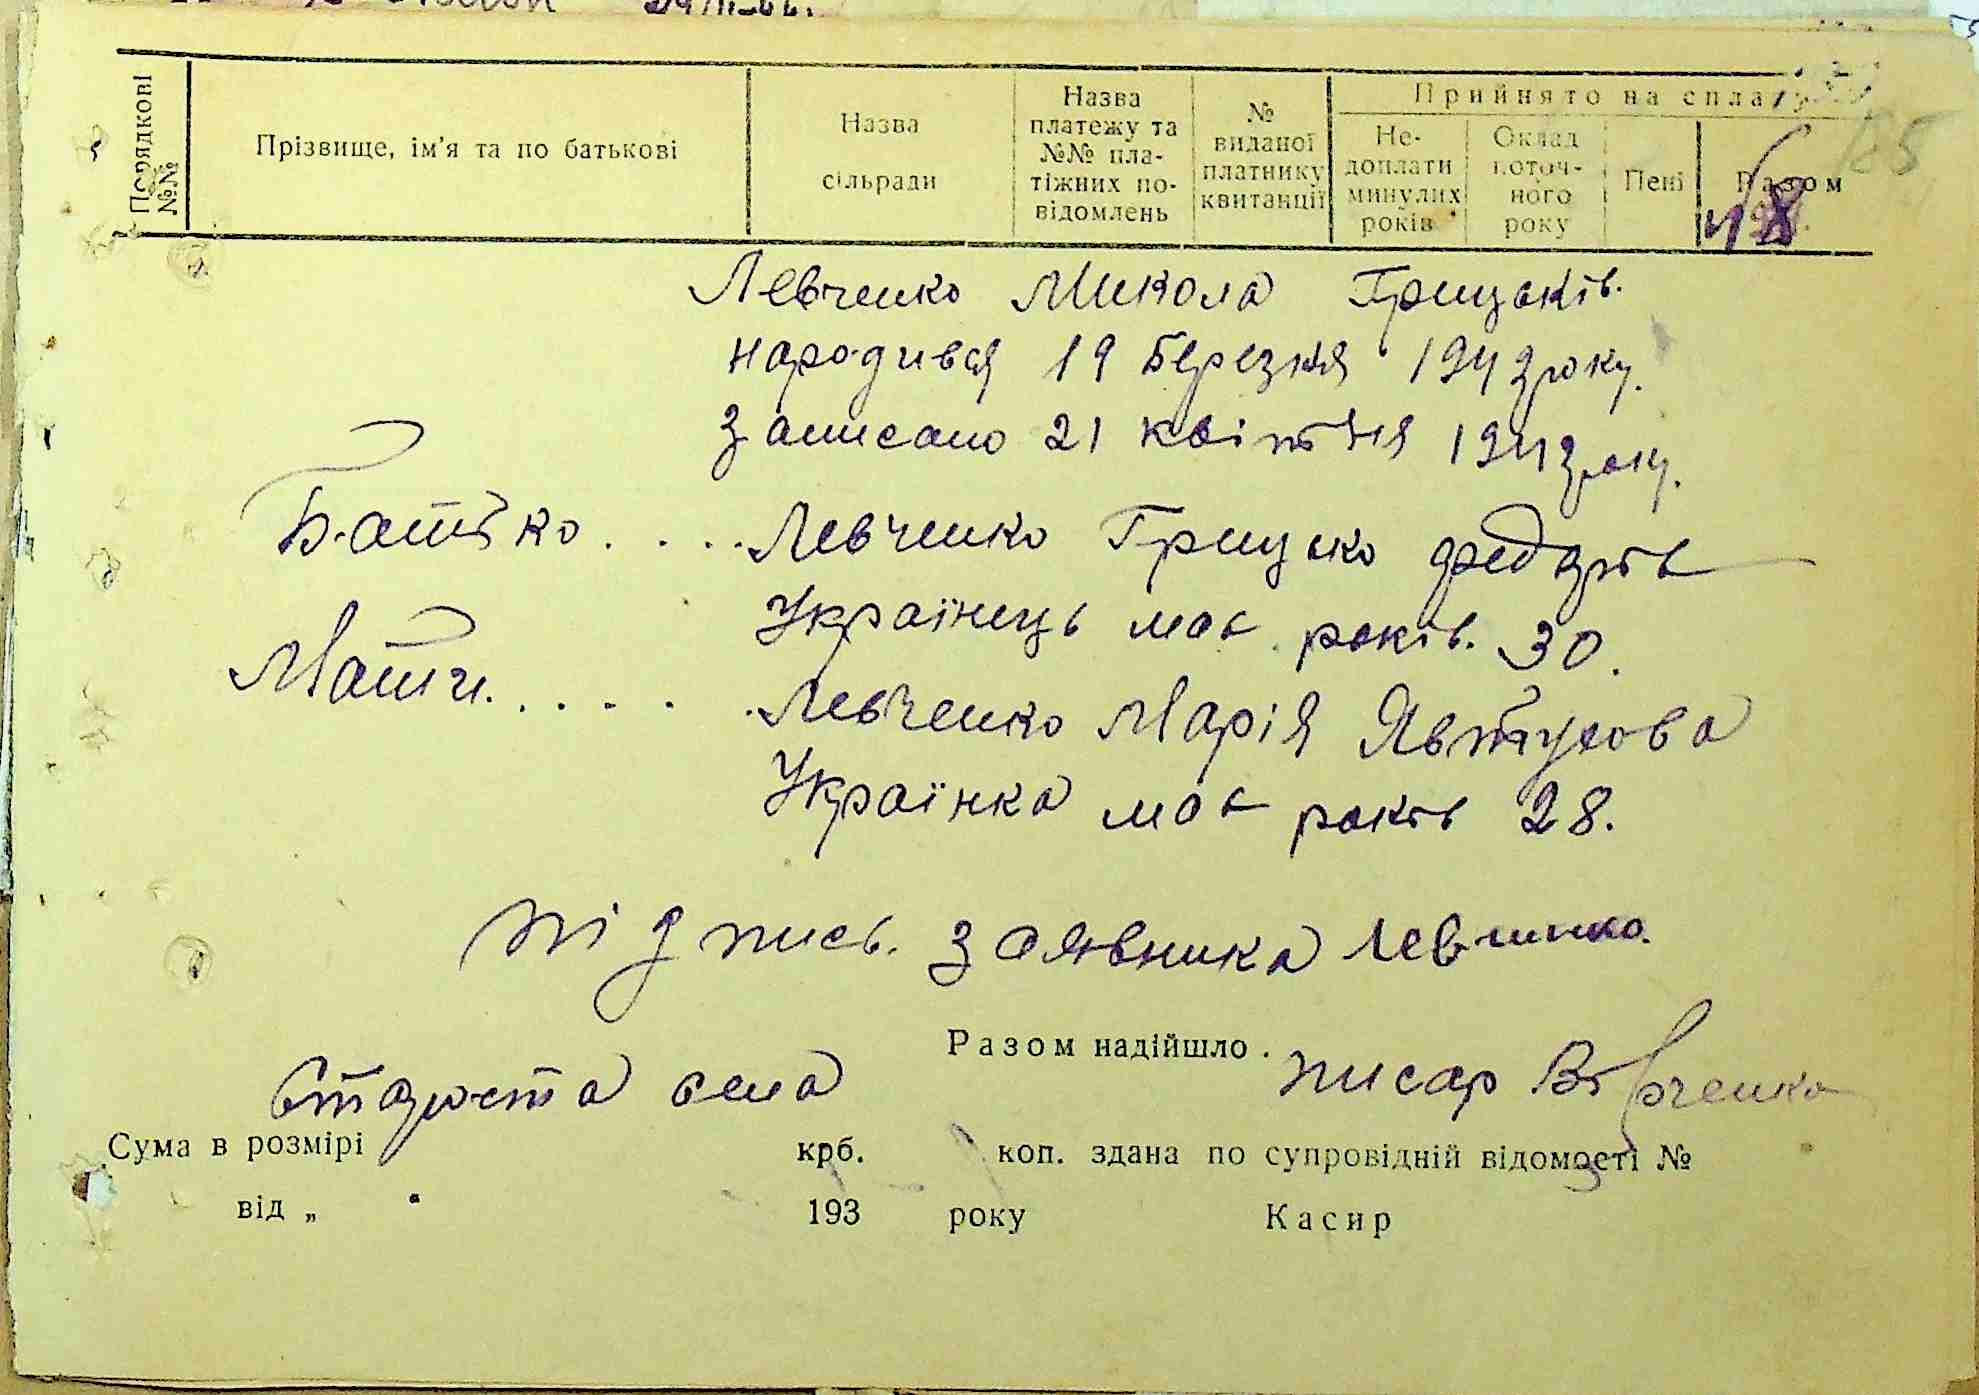 Порядкові №№
Прізвище, ім'я та по батькові
Назва сільради
Назва платежу та №№ пла-тіжних по-відомлень
№ виданої платнику квитанції
Прийнято на сплату
Не-доплати минулих років
Оклад поточ-ного року
Пені
Разом
185
48
Левченко Микола Грицьків.
народився 19 березня 1942 року.
Записано 21 квітня 1942 року.
Батько . . . . Левченко Грицько Федорів
Українець має років. 30.
Мати. . . . . . Левченко Марія Явтухова
Українка має років 28.
підпись. заявника Левченко.
Разом надійшло .
Староста села писар
Сума в розмірі крб. коп. здана по супровідній відомості №
від „ “ 193 року Касир